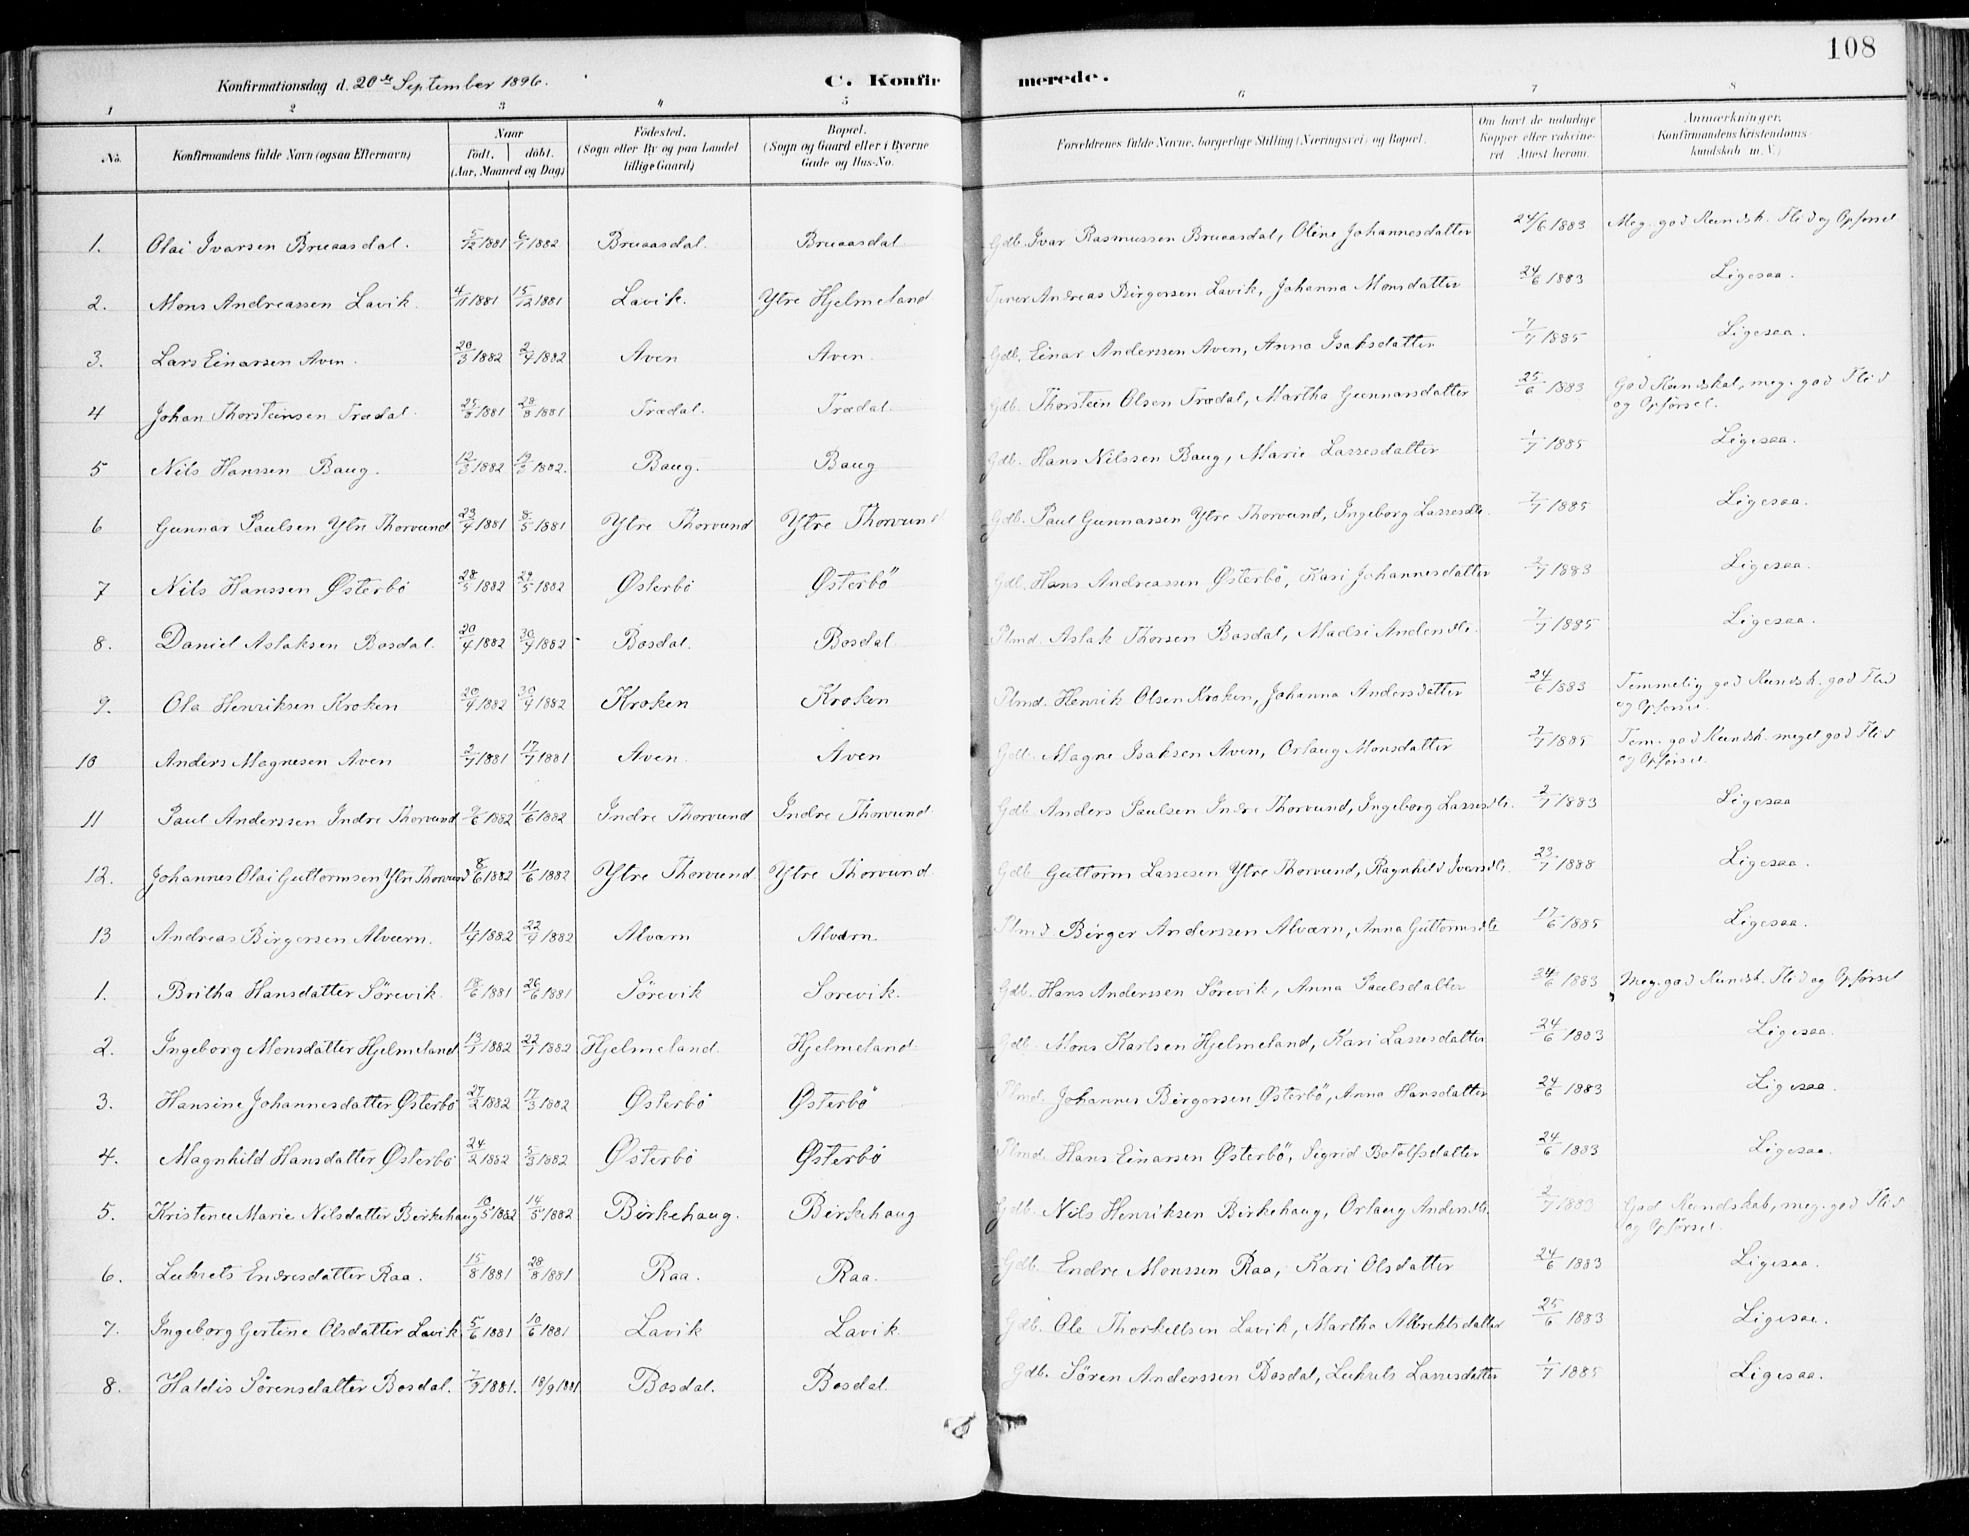 108
Konfirmationsdag d. 20de September 1896. C. Konfirmerede.
1 2 3 4 5 6 7 8
No. Konfirmandens fulde Navn (ogsaa Efternavn) Naar födt. döbt. (Aar, Maaned og Dag) Födested. (Sogn eller By og paa Landet tillige Gaard) Bopæl. (Sogn og Gaard eller i Byerne Gade og Hus-No. Forældrenes fulde Navne, borgerlige Stilling (Næringsvei) og Bopæl. Om havt de naturlige Kopper eller vaccineret. Attest herom. Anmærkninger. (Konfirmandens Kristendomskundskab m. V.)
1. Olai Ivarsen Bruaasdal. 5/12 1881 6/1 1882 Bruaasdal. Bruaasdal Gdb. Ivar Rasmussen Bruaasdal, Oline Johannesdatter 24/6 1883 Meg. god Kundsk. Flid og Opførsel
2. Mons Andreassen Lavik. 4/11 1881 15/12 1881 Lavik. Ytre Hjelmeland Andreas Birgersen Lavik, Johanna Monsdatter 24/6 1883 Ligesaa.
3. Lars Einarsen Aven. 20/3 1882 2/4 1882 Aven Aven. Gdb. Einar Anderssen Aven, Anna Isaksdatter 7/7 1885 Ligesaa.
4 Johan Thorsteinsen Trædal. 25/8 1881 28/8 1881 Trædal. Trædal. Gdb. Thorstein Olsen Trædal, Martha Gunnarsdatter 25/6 1883 God Kundskab, meg. god Flid
og Opførsel.
5 Nils Hanssen Baug. 12/3 1882 19/3 1882. Baug. Baug Gdb. Hans Nilssen Baug, Marie Lassesdatter 1/7 1885 Ligesaa.
6 Gunnar Paulsen Ytre Thorvund 23/4 1881 8/5 1881 Ytre Thorvund Ytre Thorvund Gdb. Paul Gunnarsen Ytre Thorvund, Ingeborg Lassesdtr. 7/7 1885 Ligesaa.
7 Nils Hanssen Østerbö 28/5 1882 29/5 1882 Østerbö Østerbö Gdb. Hans Andreassen Østerbö, Kari Johannesdatter 2/7 1883 Ligesaa.
8. Daniel Aslaksen Bosdal. 20/4 1882 30/4 1882 Bosdal. Bosdal. Plmd. Aslak Thorsen Bosdal, Madsi Andersdtr. 7/7 1885 Ligesaa.
9. Ola Henriksen Kroken 20/4 1882 30/4 1882 Kroken Kroken Plmd. Henrik Olsen Kroken, Johanna Andersdatter 24/6 1883 Temmelig god Kundsk. god Flid
og Opførsel.
10 Anders Magnesen Aven 2/7 1881 17/7 1881 Aven. Aven Gdb. Magne Isaksen Aven, Orlaug Monsdatter 7/7 1885 Tem. god Kundsk. meget god Flid
og Opførsel.
11 Paul Anderssen Indre Thorvund 9/6 1882 11/6 1882 Indre Thorvund Indre Thorvund. Gdb. Anders Paulsen Indre Thorvund, Ingeborg Lassesdtr. 2/7 1883 Ligesaa
12. Johannes Olai Guttormsen Ytre Thorvund 8/6 1882 11/6 1882 Ytre Thorvund Ytre Thorvund. Gdb. Guttorm Lassesen Ytre Thorvund, Ragnhild Ivarsdtr. 23/7 1888 Ligesaa.
13 Andreas Birgersen Alværn. 11/4 1882 22/4 1882 Alværn Alværn. Plmd. Birger Anderssen Alværn, Anna Guttormsdtr. 17/6 1885 Ligesaa.
1. Britha Hansdatter Sörevik. 18/6 1881 26/6 1881 Sörevik Sorevik. Gdb. Hans Anderssen Sörevik, Anna Paulsdatter 24/6 1883 Meg. god Kundsk. Flid og Opførsel
2. Ingeborg Monsdatter Hjelmeland 13/7 1882 22/7 1882 Hjelmeland. Hjelmeland Gdb. Mons Karlsen Hjelmeland, Kari Lassesdatter 24/6 1883 Ligesaa.
3. Hansine Johannesdatter Østerbö 27/2 1882 17/3 1882 Østerbö Østerbö Plmd. Johannes Birgersen Østerbö, Anna Hansdatter 24/6 1883 Ligesaa.
4. Magnhild Hansdatter Østerbö 24/2 1882 5/3 1882 Østerbö Østerbö Plmd. Hans Einarsen Østerbö, Sigrid Botolfsdatter 24/6 1883 Ligesaa.
5. Kristence Marie Nilsdatter Birkehaug 10/5 1882 14/5 1882 Birkehaug. Birkehaug Gdb. Nils Henriksen Birkehaug, Orlaug Andersdtr. 2/7 1883 God Kundskab, meg. god Flid
og Opførsel.
6. Lukrets Endresdatter Raa. 15/8 1881 28/8 1881 Raa. Raa. Gdb. Endre Monssen Raa, Kari Olsdatter 24/6 1883 Ligesaa.
7. Ingeborg Gertine Olsdatter Lavik. 5/6 1881 10/6 1881 Lavik Lavik. Gdb. Ole Thorkellsen Lavik, Martha Albrektsdatter 25/6 1883 Ligesaa.
8. Haldis Sörensdatter Bosdal. 7/9 1881. 18/9 1881. Bosdal. Bosdal. Gdb. Sören Anderssen Bosdal, Lukrets Lassesdatter 1/7 1885 Ligesaa.